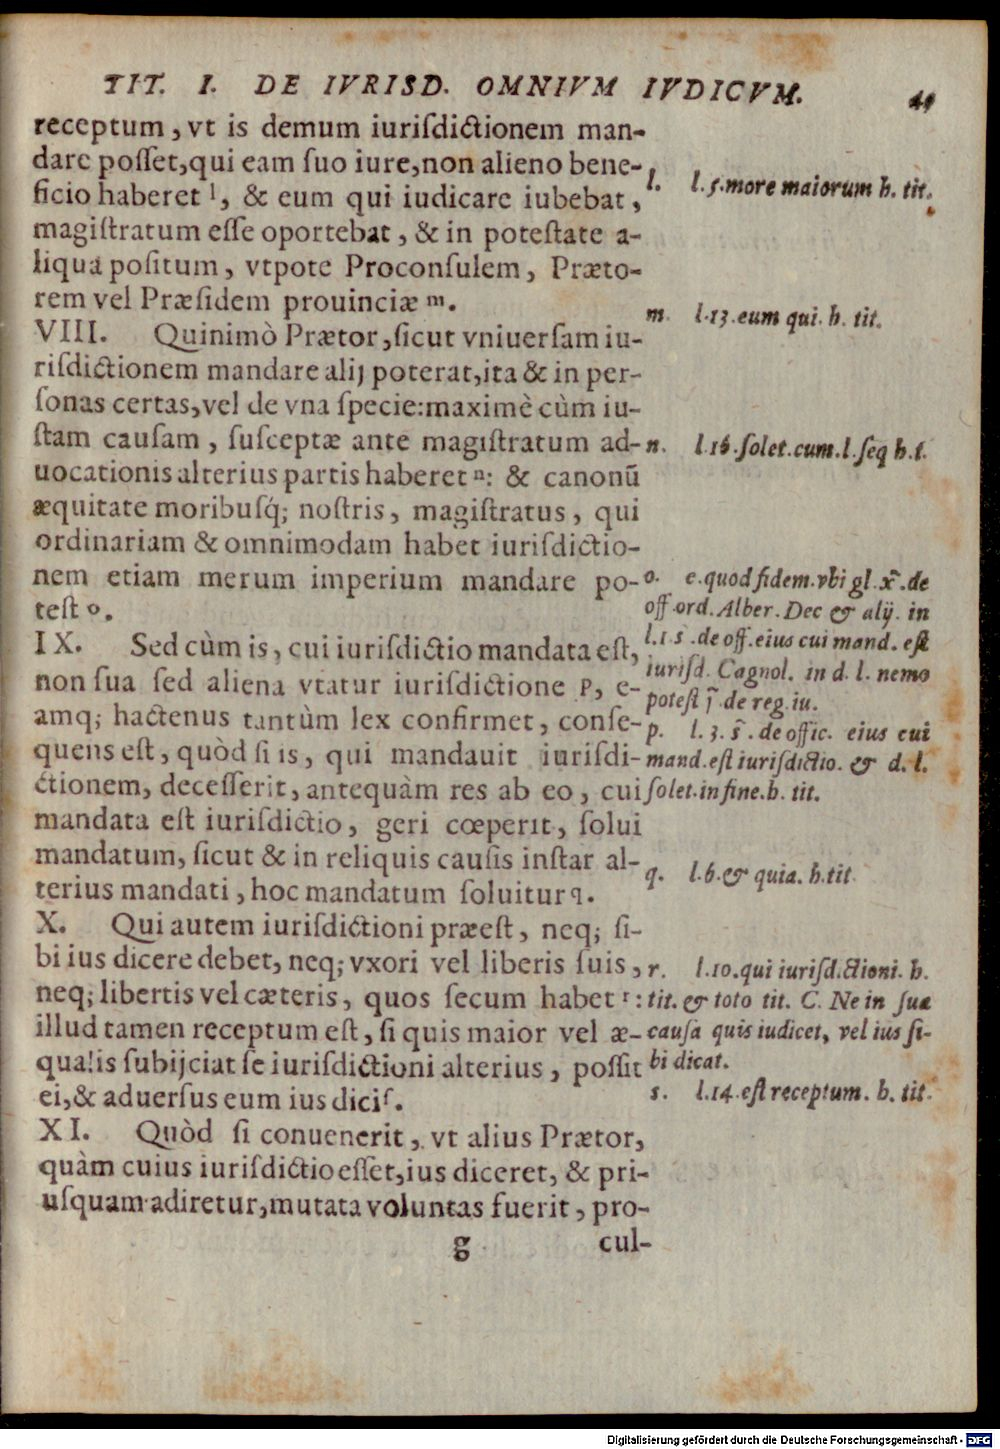 TIT. I. DE IVRISD. OMNIVM IVDICVM. 49
receptum, vt is demum iuriſdictionem man-
dare poſſet, qui eam ſuo iure, non alieno bene-
ficio haberet l, & eum qui iudicare iubebat,
magiſtratum eſſe oportebat, & in poteſtate a-
liqua poſitum, vtpote Proconſulem, Præto-
rem vel Præſidem prouinciæ m.
VIII. Quinimò Prætor, ſicut vniuerſam iu-
riſdictionem mandare alij poterat, ita & in per-
ſonas certas, vel de vna ſpecie: maximè cùm iu-
ſtam cauſam, ſuſceptæ ante magiſtratum ad-
uocationis alterius partis haberet n: & canonū
æquitate moribuſq́; noſtris, magiſtratus, qui
ordinariam & omnimodam habet iuriſdictio-
nem etiam merum imperium mandare po-
teſt o.
IX. Sed cùm is, cui iuriſdictio mandata eſt,
non ſua ſed aliena vtatur iuriſdictione p, e-
amq; hactenus tantùm lex confirmet, conſe-
quens eſt, quòd ſi is, qui mandauit iuriſdi-
ctionem, deceſſerit, antequàm res ab eo, cui
mandata eſt iuriſdictio, geri cœperit, ſolui
mandatum, ſicut & in reliquis cauſis inſtar al-
terius mandati, hoc mandatum ſoluitur q.
X. Qui autem iuriſdictioni præeſt, neq; ſi-
bi ius dicere debet, neq; vxori vel liberis ſuis,
neq; libertis vel cæteris, quos ſecum habet r:
illud tamen receptum eſt, ſi quis maior vel æ-
qualis ſubijciat ſe iuriſdictioni alterius, poſſit
ei, & aduerſus eum ius dici ſ.
XI. Quòd ſi conuenerit, vt alius Prætor,
quàm cuius iuriſdictio eſſet, ius diceret, & pri-
uſquam adiretur, mutata voluntas fuerit, pro-
g cul-
l. l. 5. more maiorum h. tit.
m. l. 13. eum qui. h. tit.
n. l. 16. ſolet. cum. l. ſeq h. t.
o. c. quod fidem. vbi gl. x̃. de
off. ord. Alber. Dec & alij. in
l. 1. §. de off. eius cui mand. eſt
iuriſd. Cagnol. in d. l. nemo
poteſt ſ̃. de reg. iu.
p. l. 3. ſ̃. de offic. eius cui
mand. eſt iuriſdictio. & d. l.
ſolet. in fine. h. tit.
q. l. 6. & quia. h. tit
r. l. 10. qui iuriſd. ctioni. h.
tit. & toto tit. C. Ne in ſua
cauſa quis iudicet, vel ius ſi-
bi dicat.
s. l. 14. eſt receptum. h. tit.
Digitalisierung gefördert durch die Deutsche Forschungsgemeinschaft - DFG